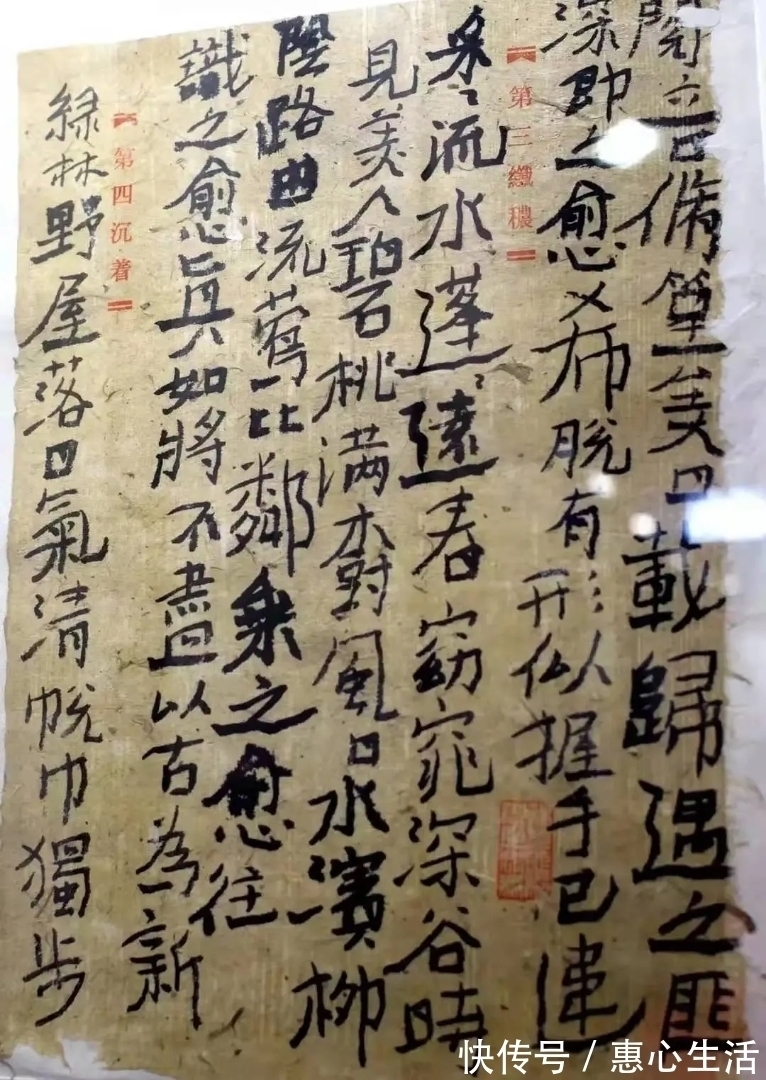 閱音脩篁美曰載歸遇之匪
深即之愈希脫有形似握手已違
第三纖穠
采〻流水蓬〻遠春窈窕深谷時
見美人碧桃满樹風日水濱柳
陰路曲流鶯比鄰乘之愈往
識之愈眞如將不盡以古為新
第四沉着
綠林野屋落日氣清脫巾獨步
快传号/惠心生活